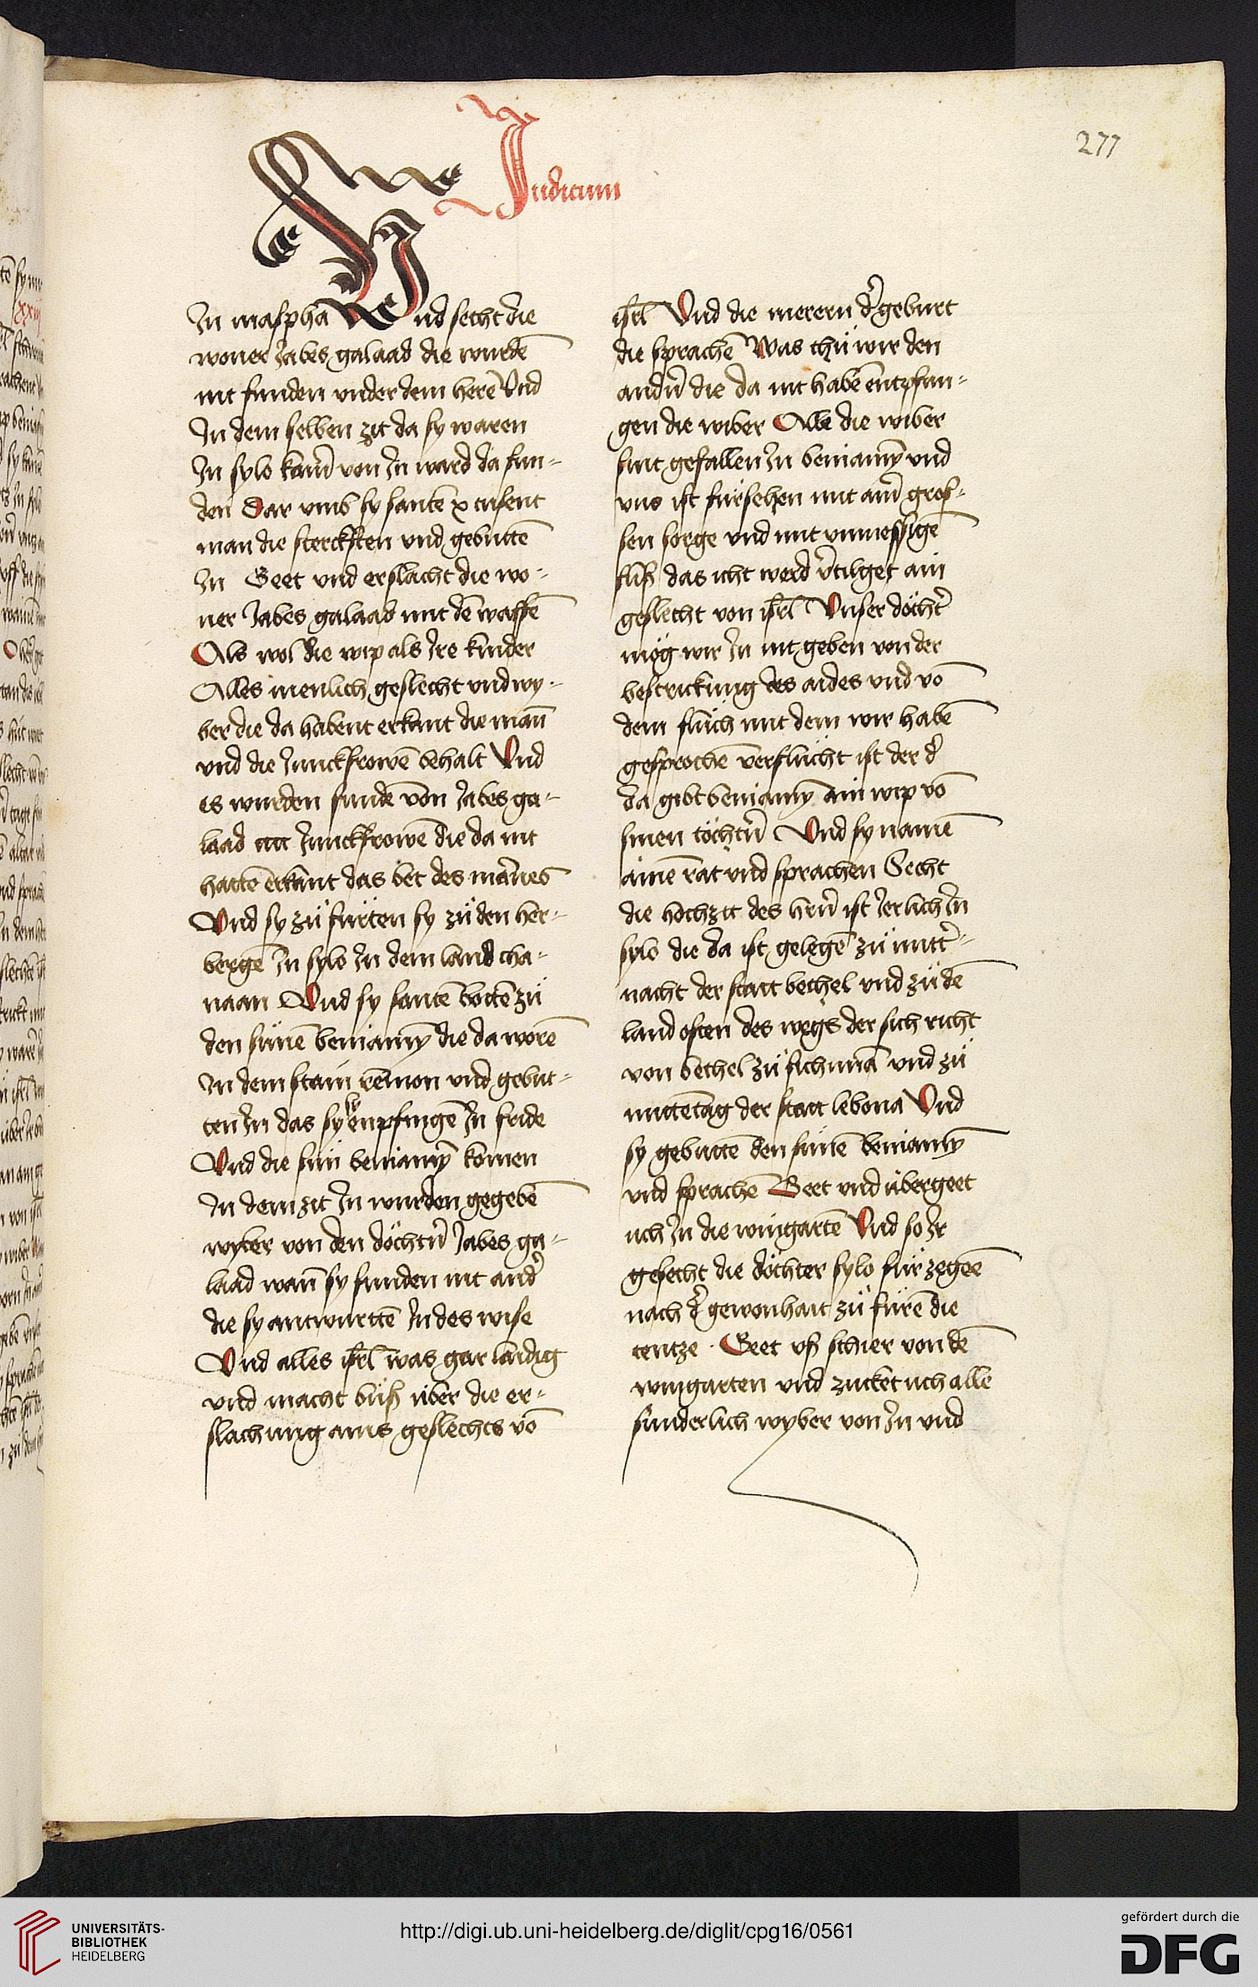 277
Judicum
Jn maspha Vnd secht die
woner Jabes galaad die wurdē
nit funden vnder dem herē Vnd
Jn dem selben zit da sy waren
Jn sylo kain̄ von Jn ward da fun-
den Dar vmb sy santē x tusent
man die stercksten vnd gebuttē
Jn Geet vnd erslacht die wo-
ner Jabes galaad mit dē waffē
Als wol die wip als Jre kinder
Alles menlich geslecht vnd wy-
ber die da habent erkant die man̄
vnd die Junckfrowē behalt Vnd
es wurden fundē von Jabes ga-
laad cccc Junckfrowē die da nit
hattē erkant das bet des man̄es
Vnd sy zů fůrten sy zů den her-
bergē Jn sylo Jn dem land cha-
naan Vnd sy santē bottē zů
den sunē beniamȳ die da worē
Jn dem stain remon vnd gebut-
ten Jn das sy sy enpfingē Jn fride
Vnd die sun beniamȳ komen
Jn dem zit Jn wurden gegebē
wyber von den döchtn̄ Jabes ga-
laad wan̄ sy funden nit and̓
die sy antwurttē Jn des wise
Vnd alles isrl̄ was gar laidig
vnd macht bůß über die er-
slachung ains geslechts vō
isrl̄ Vnd die merern d̓ geburt
die sprachē Was thů wir den
andn̄ die da nit habē entpfan-
gen die wiber Alle die wiber
sint gefallen Jn beniamȳ vnd
vns ist fürsehen mit ain̄ gros-
sen sorge vnd mit vnmessigē
fliß das icht werd v̓tilget ain
geslecht von isrl̄ Vnser döcht̓
mög wir Jn nit geben von der
bestrickung des aides vnd vō
dem flůch mit dem wir habē
gesprochē verflůcht ist der d̓
da gibt beniamȳ ain wip vō
sinen töchtn̄ Vnd sy namē
ainē rat vnd sprachen Secht
die hochzit des hern̄ ist Jerlich Jn
sylo die da ist gelegē zů mitt̓-
nacht der statt bethel vnd zů dē
land osten des wegs der sich richt
von bethel zů sichimā vnd zů
mittētag der statt lebona Vnd
sy gebuttē den sunē beniamȳ
vnd sprachē Geet vnd übergeet
uch Jn die wingartē Vnd so Jr
gesecht die döchter sylo für zegeē
nach d̓ gewonhait zů fürē die
tentze · Geet vß schier von dē
wingarten vnd zucket uch allē
sunderlich wyber von Jn vnd
UNIVERSITÄTS-
BIBLIOTHEK
HEIDELBERG
http://digi.ub.uni-heidelberg.de/diglit/cpg16/0561
gefördert durch die
DFG